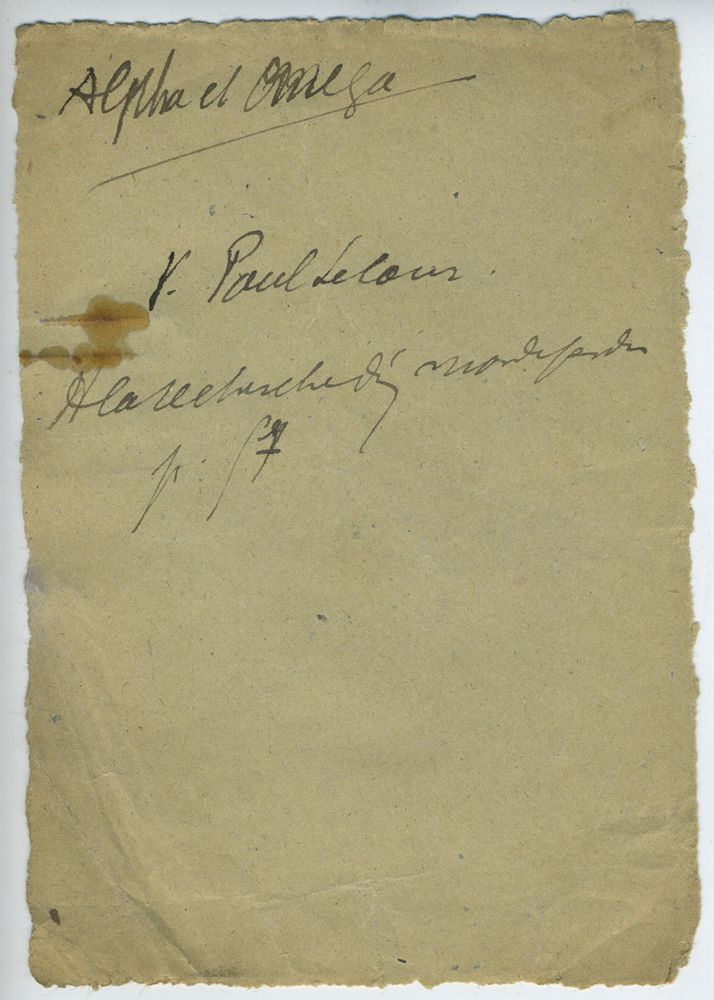 Alpha et Omega
V. Paul Lecour.
A la recherche d'un monde perdu
p. 57